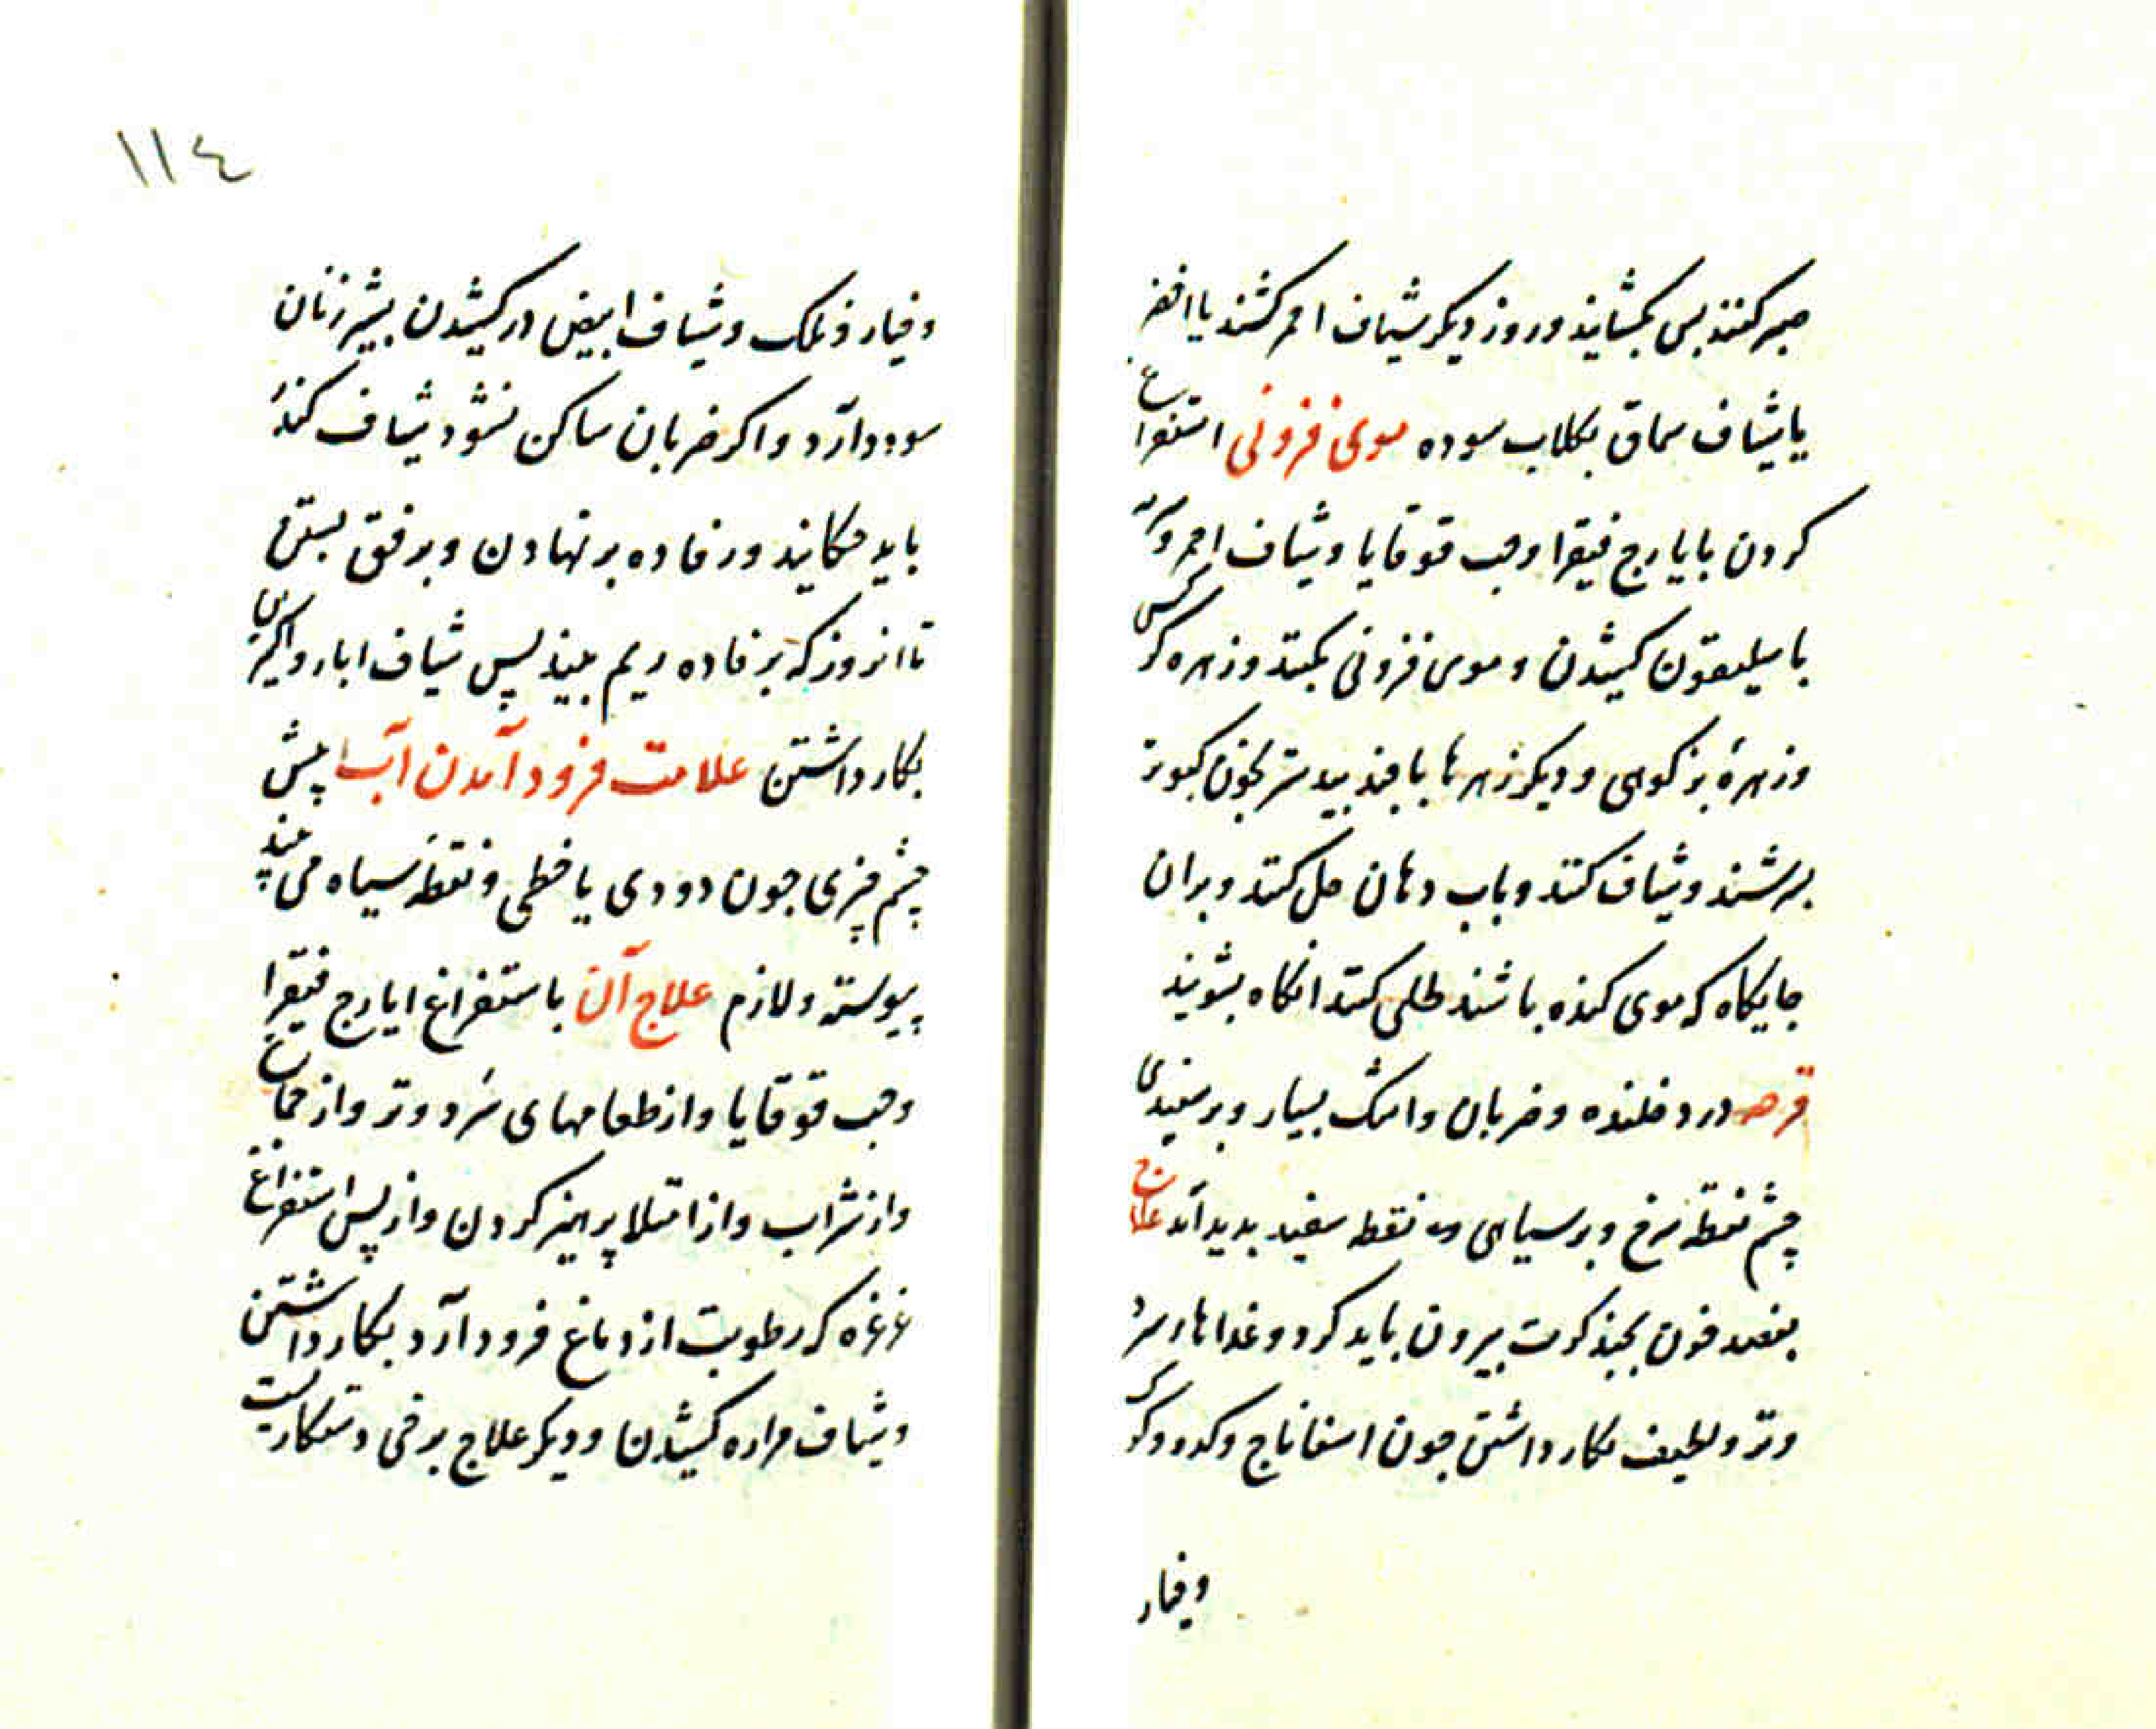 صبر کنند پس بکشایند و روز دیکر شیاف احمر کشند یا اخضر
یا شیاف سماق بکلاب سوده موی فزونی استفراغ
کردن بایارج فیقرا وحب قوقایا و شیاف احمر و
باسلیقون کشیدن و موی فزونی بکنند و زهره کرکس
و زهرهٔ بز کوهی و دیکر زهرها با جند بیدستر بخون کبوتر
بسرشند و شیاف کنند و باب دهان حل کنند و بران
جایکاه که موی کنده باشند طلی کنند انکاه بشویند
قرحه درد خلنده و ضربان و اشک بسیار و بر سفیدی
چشم نقطه سرخ و بر سیاهی نقطه سفید بدید آید علاج
بفصد خون بجند کرت بیرون باید کرد و غذاهاء سرد
و تر و لطیف بکار داشتن جون اسفاناج و کدو و
وخیار
١١٤
وخیار و نمک و شیاف ابیض در کشیدن بشیر زنان
سود دارد و اکر ضربان ساکن نشود شیاف کندر
باید جکانید و رفاده بر نهادن و برفق بستن
تا انروز که بر فاده ریم بیند پس شیاف ابار و اکسیرین
بکار داشتن علامت فرود آمدن آب پیش
چشم چیزی جون دودی یا خطی و نقطهٔ سیاه می بیند
پیوسته و لازم علاج آن باستفراغ ایارج فیقرا
وحب قوقایا و از طعامهای سرد و تر و از جماع
و از شراب و از امتلا پرهیز کردن و از پس استفراغ
غرغره که رطوبت از دماغ فرود آرد بکار داشتن
و شیاف مراره کشیدن و دیکر علاج برقی دستکاریست